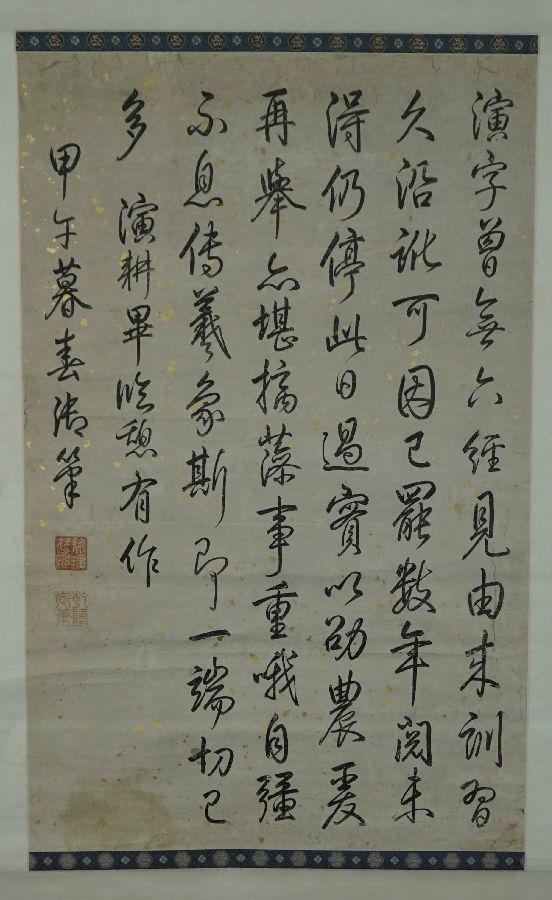 演字曾無六經見由来訓習
久沿訛可因已罷數年閱未
得仍停此日過實以劭農爰
再舉亦堪摛藻事重哦自彊
不息傳羲象斯即一端切己
多 演耕畢臨憩有作
甲午暮春御筆